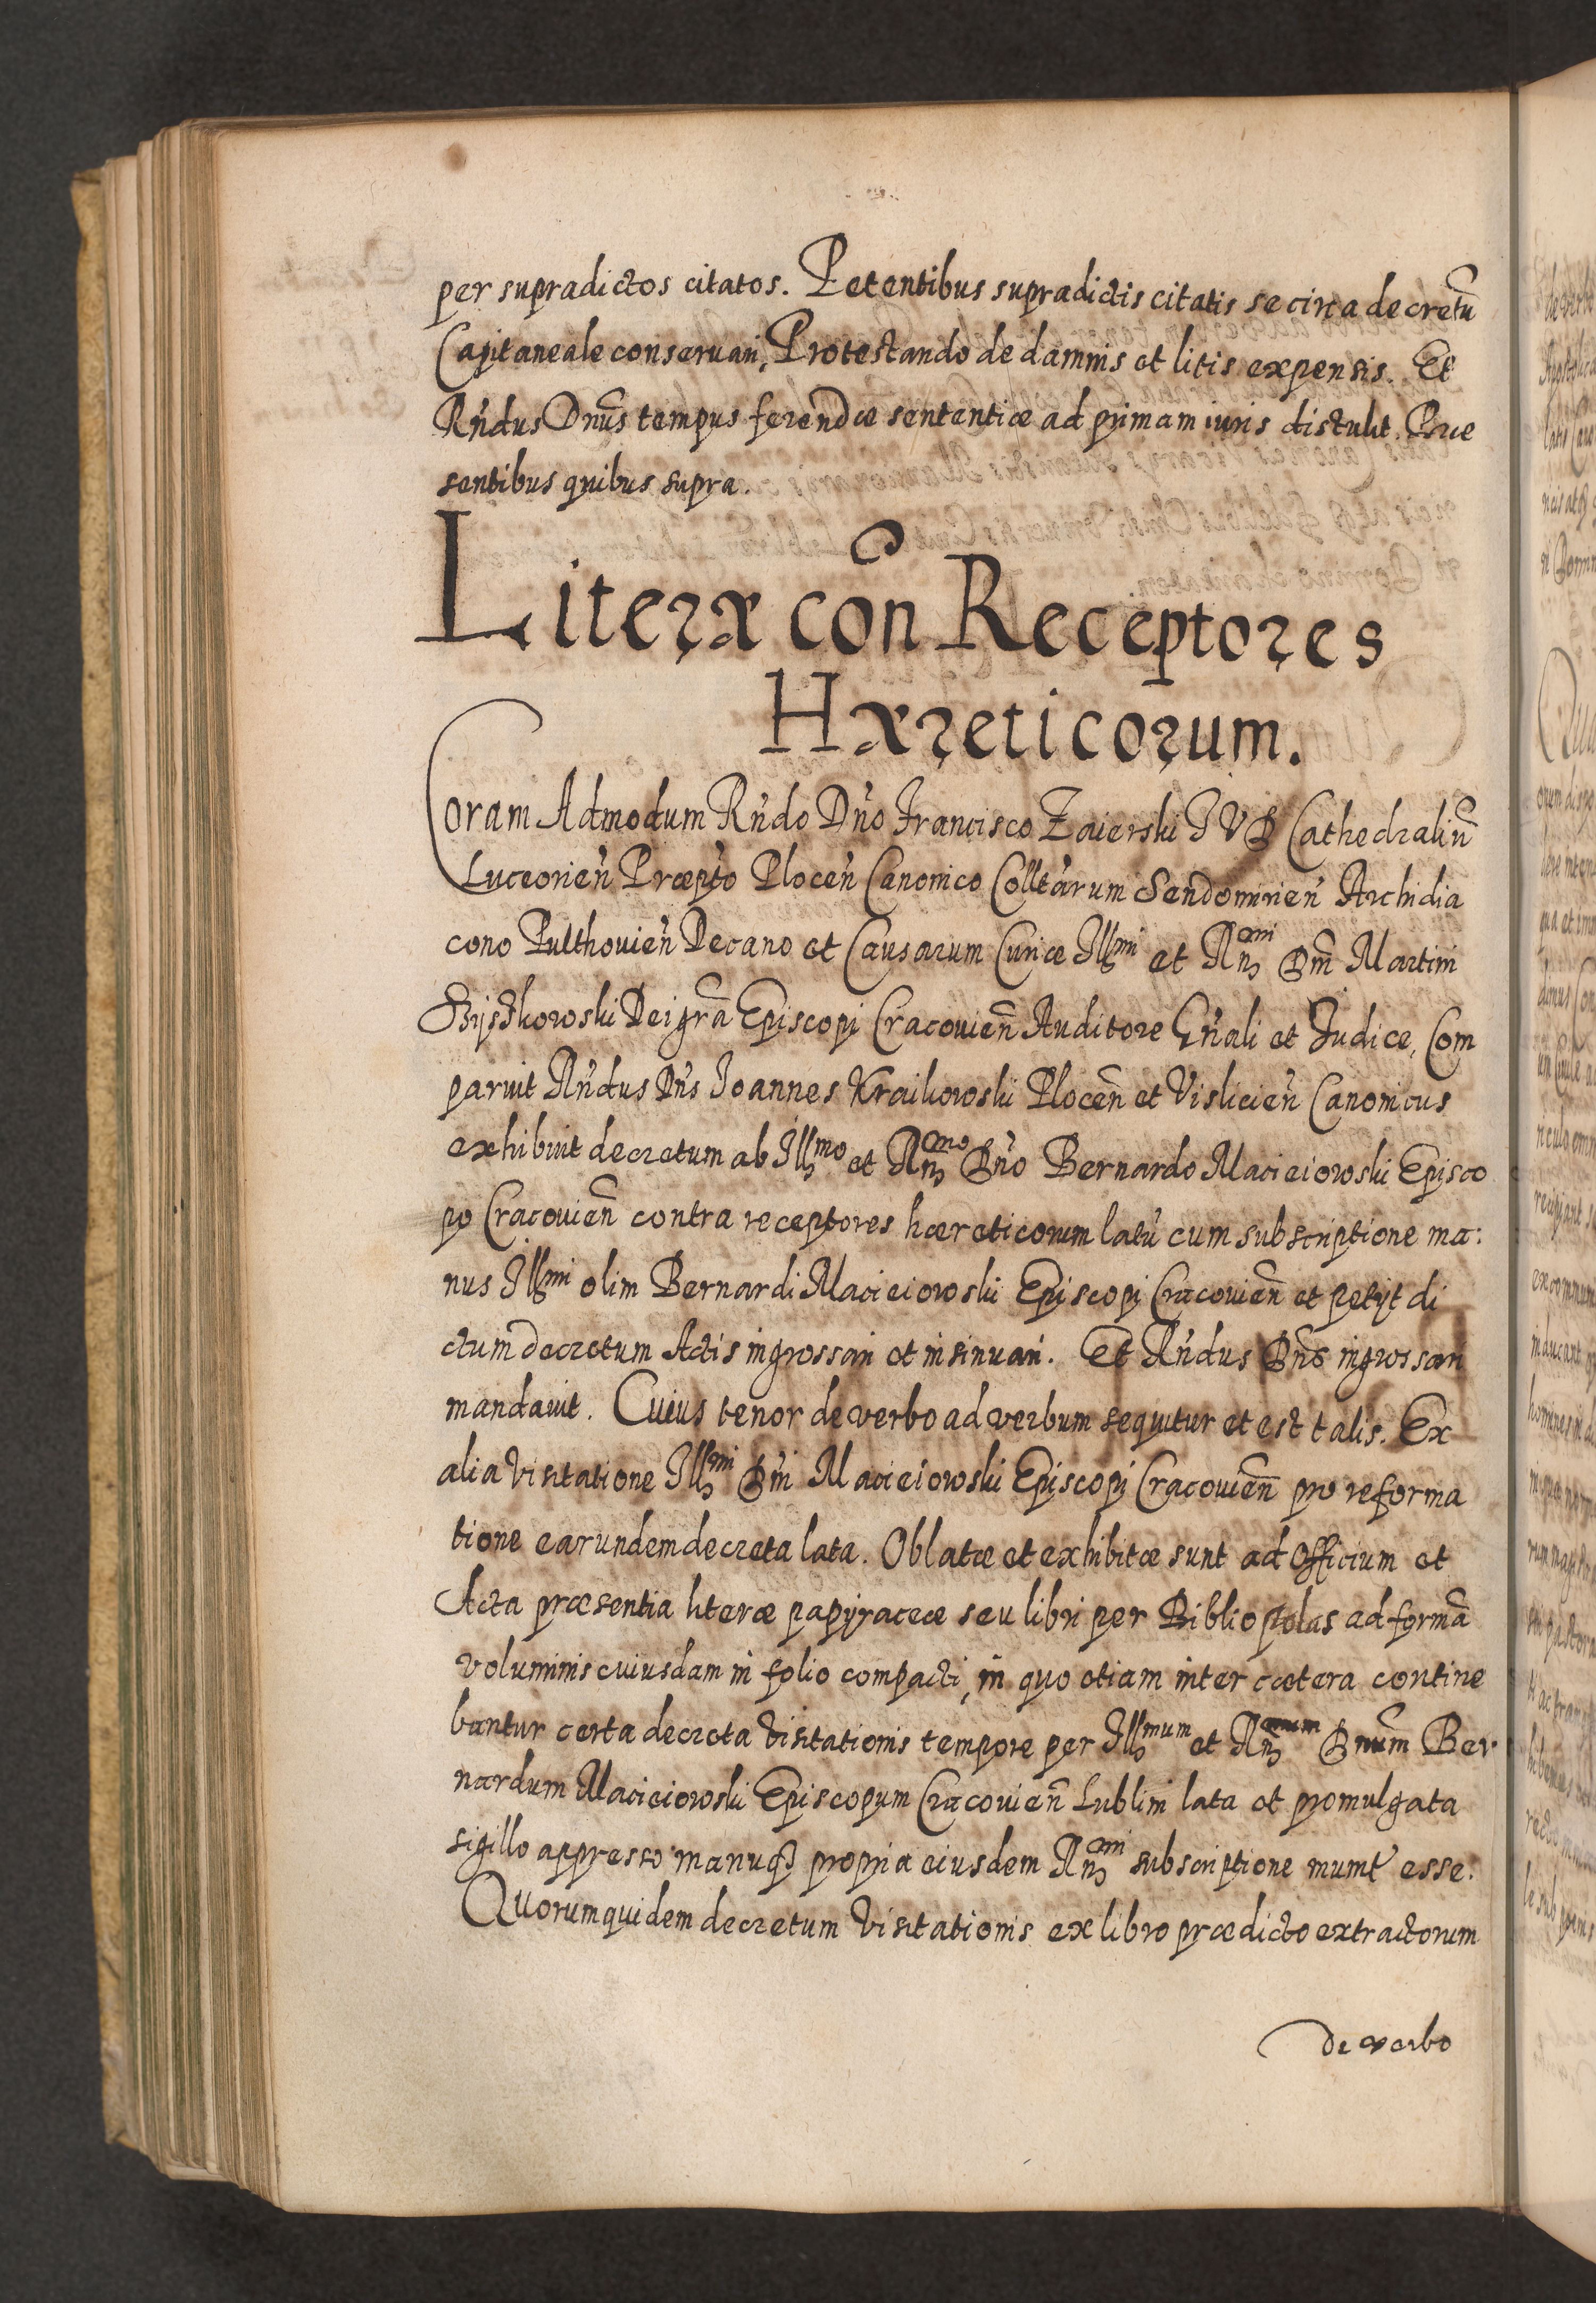 per supradictos citatos. Petentibus supradictis citatis se circa decretũ
Capitaneale conseruari, Protestando de damnis et litis expensis. Et
Rńdus Dnũs tempus ferendæ sententiæ ad primam iuris distulit. Præ
sentibus quibus supra.
Literæ coñ Receptores
Hæreticorum.
Coram Admodum Rńdo Dńo Francisco Zaierski I V D Cathedraliũ
Luceorień Præpto Plocеń Canonico Colltarum Sendomirień Archidia
cono Pulthouień Decano et Causarum Curiæ Illmi et Rmi Dñi Martini
Szyszkowski Dei grã Episcopi Cracouień Auditore Gńali et Iudice, Com
paruit Rńdus Dńs Ioannes Kraikowski Plocеñ et Vislicień Canonicus
exhibuit decretum ab Illmo et Rmo Dńo Bernardo Macieiowski Episco
po Cracouień contra receptores hæreticorum latũ cum subscriptione ma:
nus Illmi olim Bernardi Macieiowski Episcopi Cracouień et petyt di
ctum decretum Actis ingrossari et insinuari. Et Rńdus Dñs ingrossari
mandauit. Cuius tenor de verbo ad verbum sequitur et est talis. Ex
alia Visitatione Illmi Dńi Macieiowski Episcopi Cracouień pro reforma
tione earundem decreta lata. Oblatæ et exhibitæ sunt ad Officium et
Acta præsentia literæ papyraceæ seu libri per Bibliopolas ad formã
voluminis cuiusdam in folio compacti, in quo etiam inter cætera contine
bantur certa decreta Visitationis tempore per Illmum et Rmum Dnũm Ber
nardum Macieiowski Episcopum Cracouień Lublini lata et promulgata
sigillo appresso manuq3 propria eiusdem Rmi subscriptione munit esse.
Quorumquidem decretum Visitationis ex libro prædicto extractorum
de verbo